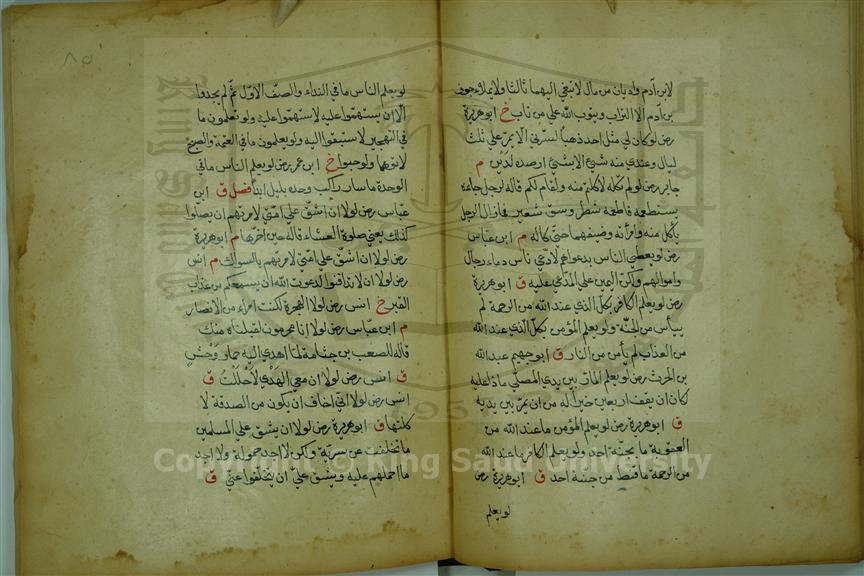 لابن آدم واديان من مال لابتغى اليهما ثالثا ولا يملأ جوف
بن آدم الا التراب ويتوب الله على من تاب خ ابو هريرة
رض لو كان لى مثل احد ذهبا لسرنى الا يمر على ثلث
ليال وعندى منه شئ الا شئ ارصده لدين م
جابر رض لو لم تكله لاكلتم منه ولقام لكم قاله لرجل جاءه
يستطعمه فاطعمه شطر وسق شعير فما زال الرجل
يأكل منه وامرأته وضيفهما حتى كاله م ابن عباس
رض لو يعطى الناس بدعواهم لادعى ناس دماء رجال
واموالهم ولكن اليمين على المدعى عليه ق ابو هريرة
رض لو يعلم الكافر بكل الذى عند الله من الرحمة لم
ييأس من الجنة ولو يعلم المؤمن بكل الذى عند الله
من العذاب لم يأمن من النار ق ابو جهيم عبد الله
بن الحرث رض لو يعلم المار بين يدى المصلى ماذا عليه
لكان ان يقف اربعين خيرا له من ان يمر بين يديه
ق ابو هريرة رض لو يعلم المؤمن ما عند الله من
العقوبة ما بجنته احد ولو يعلم الكافر ما عند الله
من الرحمة ما قنط من جنته احد ق ابو هريرة رض
لو يعلم
٨٥
لو يعلم الناس ما فى النداء والصف الاول ثم لم يجدوا
الا ان يستهموا عليه لاستهموا عليه ولو يعلمون ما
فى التهجير لاستبقوا اليه ولو يعلمون ما فى العتمة والصبح
لاتوهما ولو حبوا خ ابن عمر رض لو يعلم الناس ما فى
الوحدة ما سار راكب وحده بليل ابدا فصل ق ابن
عباس رض لولا ان اشق على امتى لامرتهم ان يصلوا
كذلك يعنى صلوة العشاء قاله حين اخرها م ابو هريرة
رض لولا ان اشق على امتى لامرتهم بالسواك م انس
رض لولا ان لا تدافنوا لدعوت الله ان يسمعكم من عذاب
القبر خ انس رض لولا الهجرة لكنت امراء من الانصار
م ابن عباس رض لولا انا محرمون لقبلناه منك
قاله للصعب بن جثامة لما اهدى اليه حمار وحش
ق انس رض لولا ان معى الهدى لاحللت ق
انس رض لولا انى اخاف ان يكون من الصدقة لا
كلتها ق ابو هريرة رض لولا ان يشق على المسلمين
ما تخلفت عن سرية ولكن لا اجد حمولة ولا اجد
ما احملهم عليه ويشق على ان يتخلفوا عنى ق
Copyright © King Saud University
1957